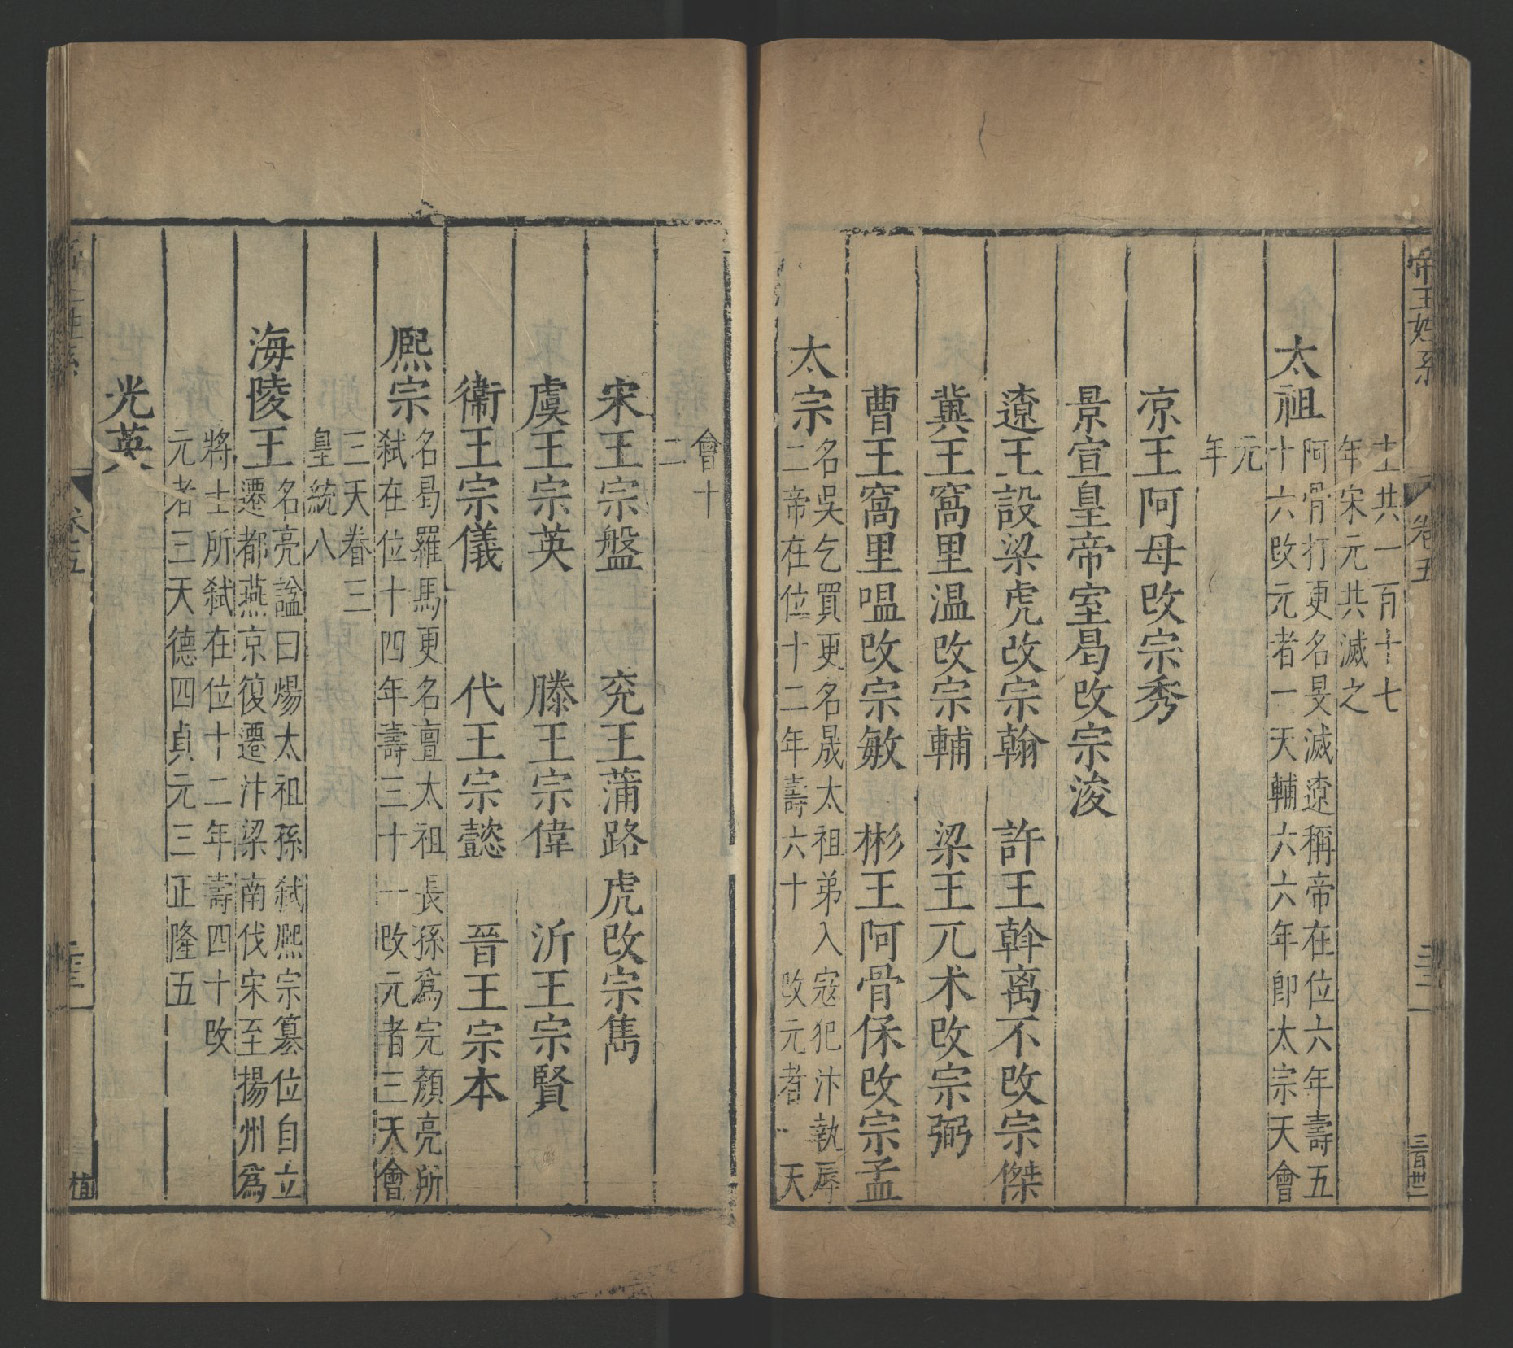 帝王姓系 卷五
主共一百十七
年宋元共滅之
太祖
阿骨打更名旻滅遼稱帝在位六年壽五
十六改元者一天輔六六年卽太宗天會
元
年
凉王阿母改宗秀
景宣皇帝室曷改宗浚
遼王設梁虎改宗翰 許王斡离不改宗傑
冀王窩里温改宗輔 梁王兀术改宗弼
曹王窩里嗢改宗敏 彬王阿骨保改宗孟
太宗
名吳乞買更名晟太祖弟入寇犯汴執辱
二帝在位十二年壽六十 改元者一天
會十
二
宋王宗盤 兖王蒲路虎改宗雋
虞王宗英 滕王宗偉 沂王宗賢
衛王宗儀 代王宗懿 晉王宗本
熈宗
名曷羅馬更名亶太祖長孫爲完顔亮所
弑在位十四年壽三十一改元者三天會
三天眷三
皇統八
海陵王
名亮諡曰煬太祖孫弑熈宗簒位自立
遷都燕京復遷汴梁南伐宋至揚州爲
將士所弑在位十二年壽四十改
元者三天德四貞元三正隆五
光英